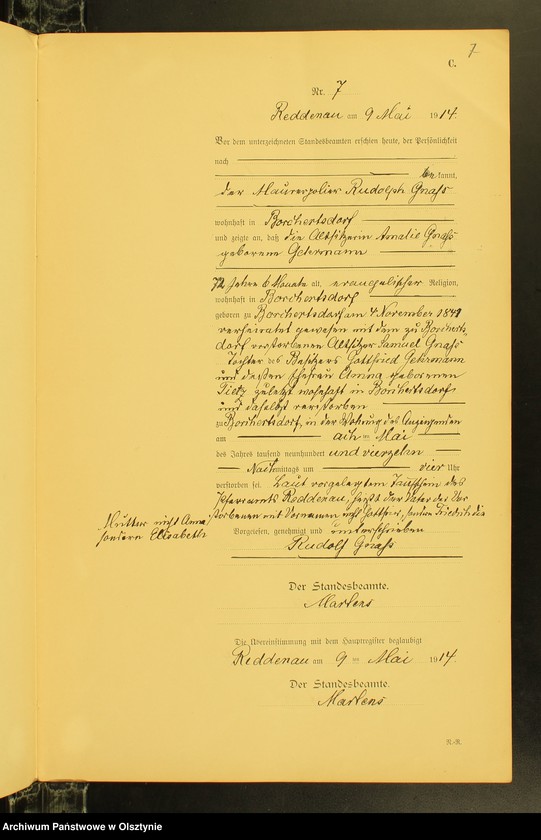 7
C.
Nr. 7
Reddenau am 9 Mai 1914.
Vor dem unterzeichneten Standesbeamten erschien heute, der Persönlichkeit
nach
be kannt,
der Maurerpolier Rudolph Gnaß
wohnhaft in Borchertsdorf
und zeigte an, daß die Altsitzerin Amalie Gnaß
geborene Gehrmann
72 Jahre 6 Monate alt, evangelischer Religion,
wohnhaft in Borchertsdorf
geboren zu Borchertsdorf am 4 November 1841
verheiratet gewesen mit dem zu Borcherts
dorf verstorbenen Altsitzer Samuel Gnaß
Tochter des Besitzers Gottfried Gehrmann
und dessen Ehefrau Anna geborenen
Tietz zuletzt wohnhaft in Borchertsdorf
und daselbst verstorben
zu Borchertsdorf, in der Wohnung des Anzeigenden
am acht ten Mai
des Jahres tausend neunhundert und vierzehn
Nach mittags um vier Uhr
verstorben sei. Laut vorgelegtem Taufschein des
Pfarramts Reddenau, heißt der Vater der Ver
storbenen mit Vornamen nicht Gottfried, sondern Friedrich die
Mutter nicht Anna,
sondern Elisabeth
Vorgelesen, genehmigt und unterschrieben
Rudolf Gnaß
Der Standesbeamte.
Martens
Die Übereinstimmung mit dem Hauptregister beglaubigt
Reddenau am 9 ten Mai 1914.
Der Standesbeamte.
Martens
Archiwum Państwowe w Olsztynie